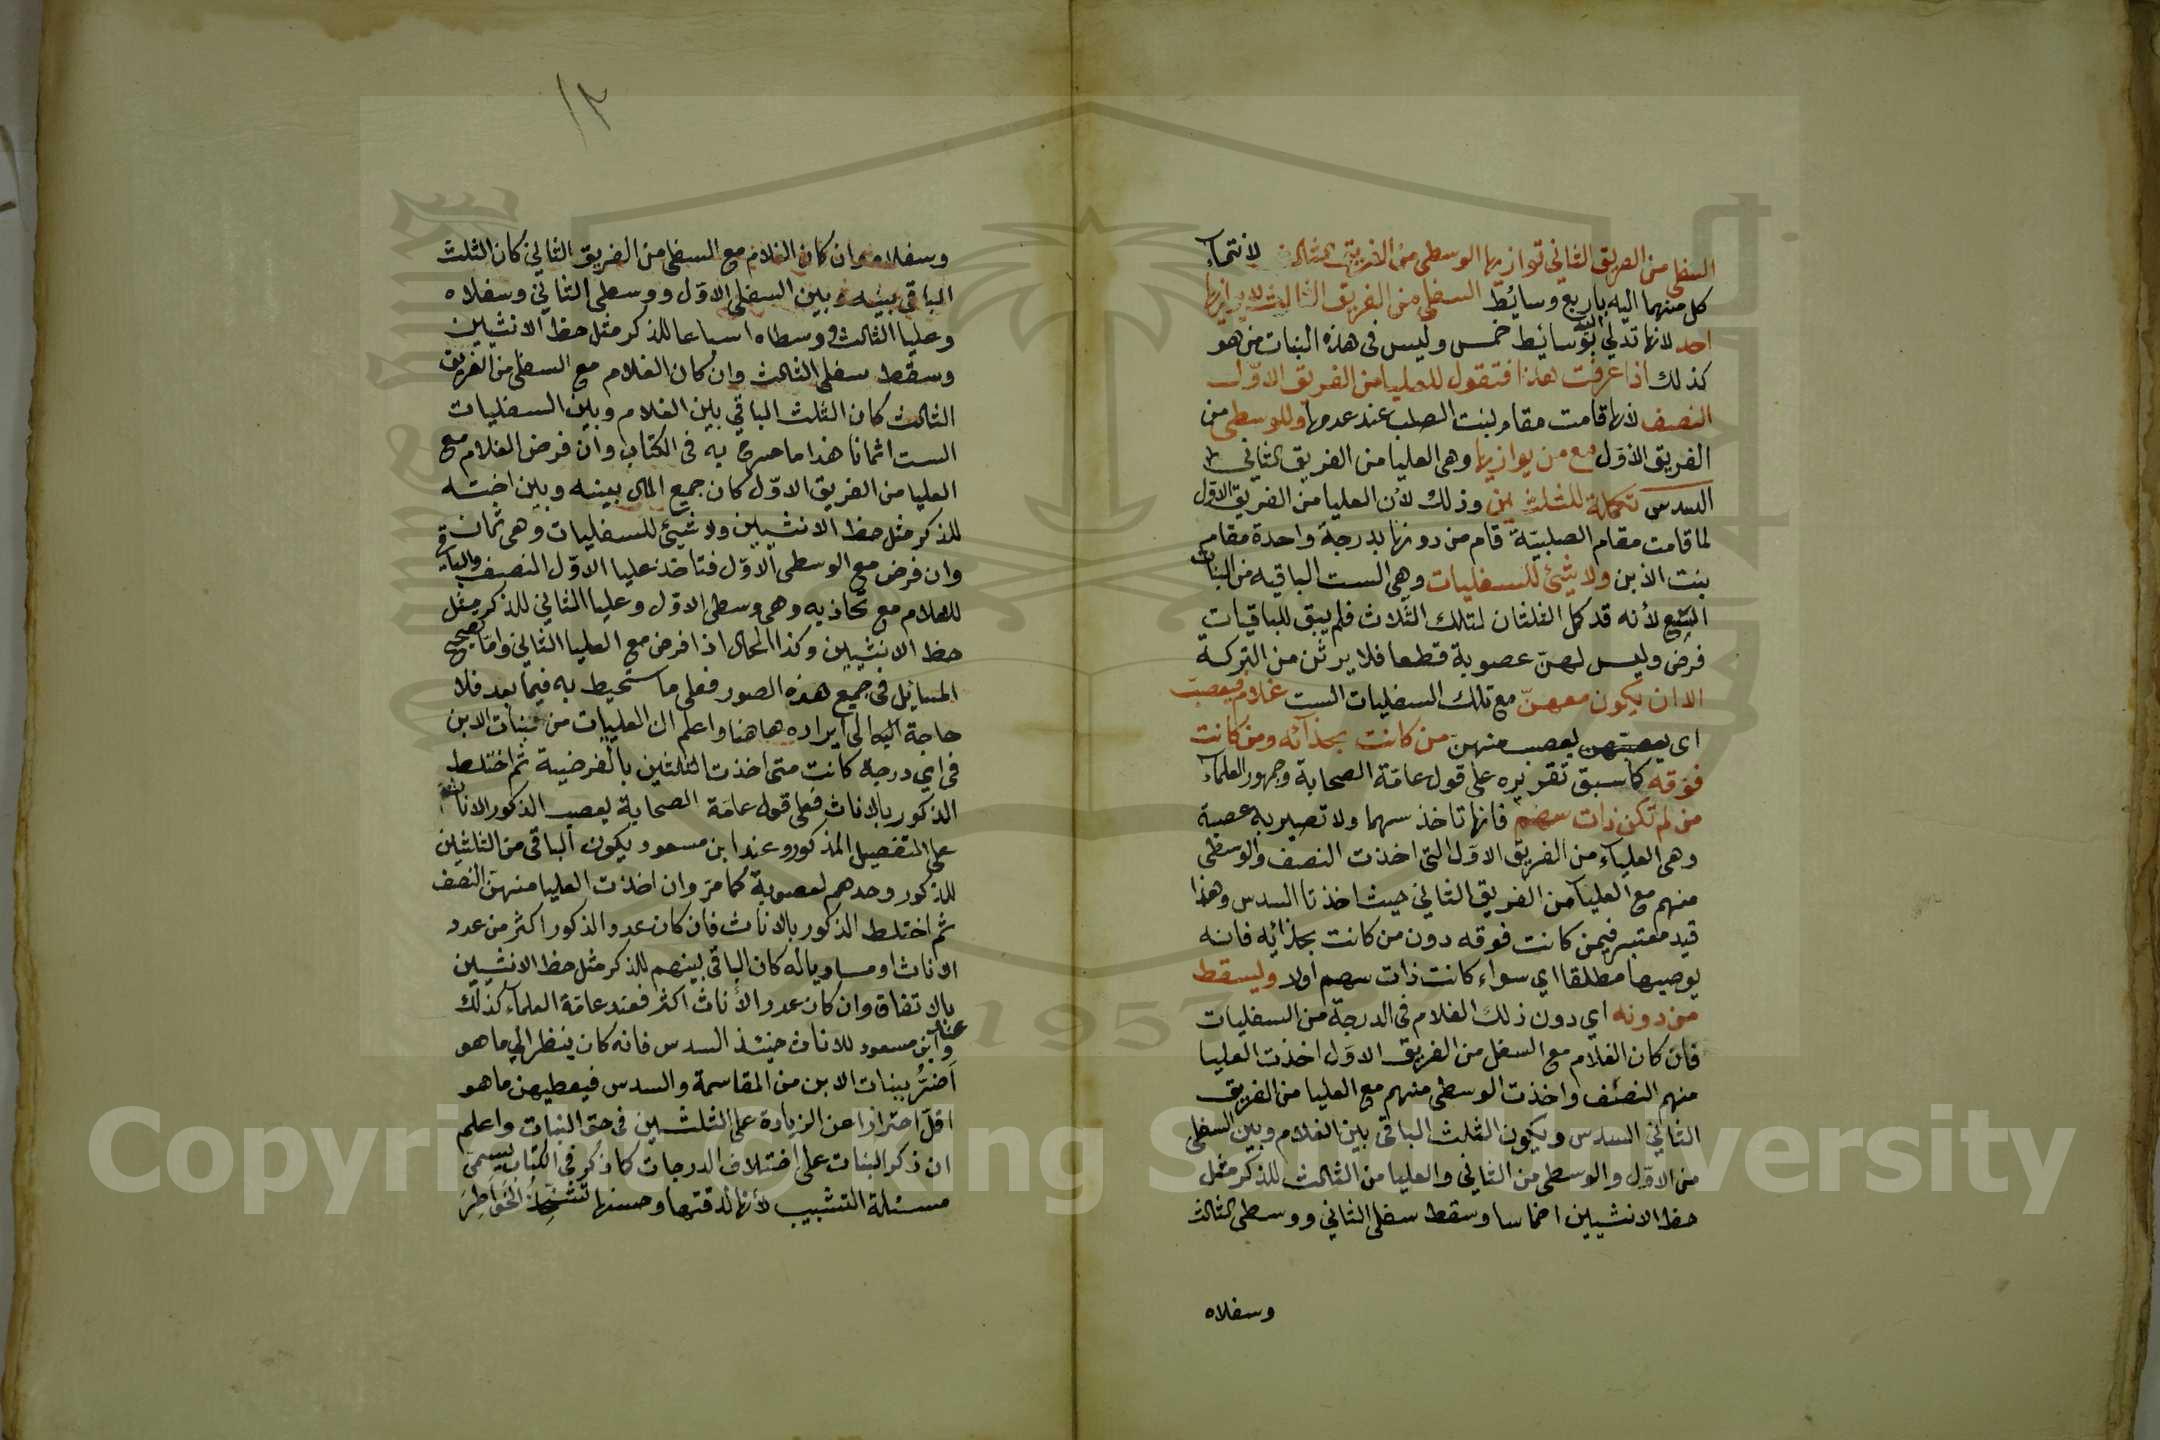 السفلى من الفريق الثاني توازيها الوسطى من الفريق الثالث لانتماء
كل منهما اليه باربع وسائط السفلى من الفريق الثالث لا يوازيها
احد لانها تدلي اليه بوسائط خمس وليس فى هذه البنات من هو
كذلك اذا عرفت هذا فتقول للعليا من الفريق الاوّل
النصف لانها قامت مقام بنت الصلب عند عدمها وللوسطى من
الفريق الاوّل مع من يوازيها وهى العليا من الفريق الثانى
السدس تكملة للثلثين وذلك لأن العليا من الفريق الاوّل
لما قامت مقام الصلبيّة قام من دونها بدرجة واحدة مقام
بنت الابن ولا شئ للسفليات وهى الست الباقيه من البنات
التسع لأنه قد كل الثلثان لتلك الثلاث فلم يبق للباقيات
فرض وليس لهنّ عصوبة قطعا فلا يرثن من التركه
الا ان يكون معهنّ مع تلك السفليات الست غلام فيعصبّ
اى يعصبّهن يعصب منهنّ من كانت بحذائه ومن كانت
فوقه كما سبق تقريره على قول عامّة الصحابة وجمهور العلماء
من لم تكن ذات سهم فانها تاخذ سهما ولا تصير به عصبة
وهى العلياء من الفريق الاوّل التى اخذت النصف والوسطى
منهم مع العليا من الفريق الثاني حيث اخذتا السدس وهذا
قيد معتبر فيمن كانت فوقه دون من كانت بحذائه فانه
يوصبها مطلقا اي سواء كانت ذات سهم اولا وليسقط
من دونه اي دون ذلك الغلام فى الدرجة من السفليات
فان كان الغلام مع السفل من الفريق الاوّل اخذت العليا
منهم النصف واخذت الوسطى منهم مع العليا من الفريق
الثاني السدس ويكون الثلث الباقى بين الغلام وبين السفلى
من الاوّل والوسطى من الثاني والعليا من الثالث للذكر مثل
حظ الانثيين اخماسا وسقط سفلى الثاني ووسطى الثالث
وسفلاه
١٢
وسفلاه وان كان الغلام مع السفلى من الفريق الثاني كان الثلث
الباقي بينه وبين السفلى الاوّل ووسطى الثاني وسفلاه
وعليا الثالث ووسطاه اسباعا للذكر مثل حظ الانثيين
وسقط سفلى الثالث وان كان الغلام مع السفلى من الفريق
الثالث كان الثلث الباقي بين الغلام وبين السفليات
الست اثمانا هذا ما صرح به فى الكتاب وان فرض الغلام مع
العليا من الفريق الاوّل كان جميع المال بينه وبين اخته
للذكر مثل حظ الانثيين ولا شيئ للسفليات وهى ثمان
وان فرض مع الوسطى الاوّل فتاخذ عليا الاوّل النصف والباقي
للغلام مع تحاذيه وهى وسطى الاوّل وعليا الثاني للذكر مثل
حظ الانثيين وكذا الحال اذا فرض مع العليا الثاني وامّا تصحيح
المسائل فى جميع هذه الصور فعلى ما ستحيط به فيما بعد فلا
حاجة اليه الى ايراده هاهنا واعلم ان العليات من بنات الابن
فى اي درجة كانت متى اخذت الثلثين بالفرضية ثم اختلط
الذكور بالاناث فعلى قول عامّة الصحابة يعصب الذكور الاناث
على التفصيل المذكور وعند ابن مسعود يكون الباقى من الثلثين
للذكور وحدهم لعصوبة كما مرّ وان اخذت العليا منهنّ النصف
ثم اختلط الذكور بالاناث فان كان عدد الذكور اكثر من عدد
الاناث او مساويا له كان الباقي بينهم للذكر مثل حظ الانثيين
بالاتفاق وان كان عدد الأناث اكثر فعند عامّة العلماء كذلك
وعند ابن مسعود للاناث حينئذ السدس فانه كان ينظر الى ما هو
اضرُّ ببنات الابن من المقاسمة والسدس فيعطيهن ما هو
اقلّ احترازا عن الزيادة على الثلثين فى حق البنات واعلم
ان ذكر البنات على اختلاف الدرجات كما ذكر فى الكتاب يسمى
مسئلة التشبيب لأنها لدقتها وحسنها تشحذ الخواطر